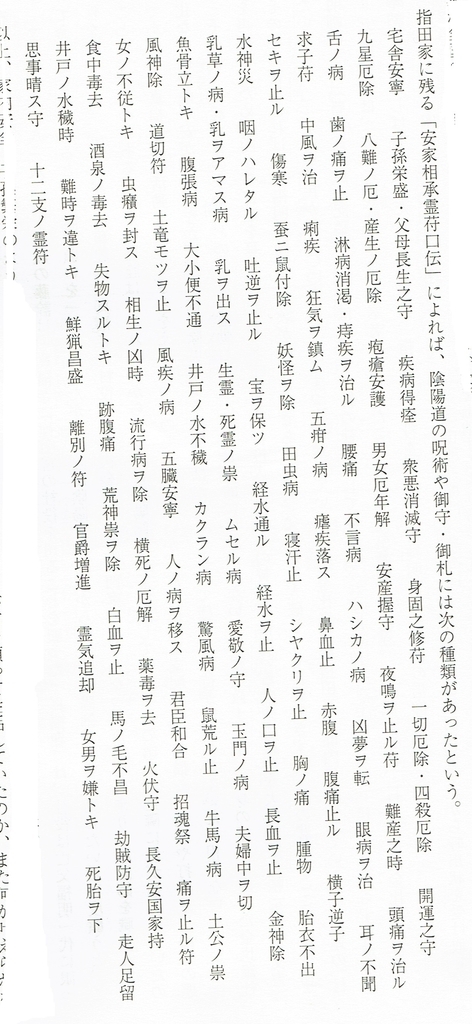 指田家に残る「安家相承霊符口伝」によれば、陰陽道の呪術や御守・御札には次の種類があったという。
宅舎安寧　子孫栄盛・父母長生之守　疾病得痊　衆悪消滅守　身固之修苻　一切厄除・四殺厄除　開運之守
九星厄除　八難ノ厄・産生ノ厄除　疱瘡安護　男女厄年解　安産握守　夜鳴ヲ止ル苻　難産之時　頭痛ヲ治ル
舌ノ病　歯ノ痛ヲ止　淋病消渇・痔疾ヲ治ル　腰痛　不言病　ハシカノ病　凶夢ヲ転　眼病ヲ治　耳ノ不聞
求子苻　中風ヲ治　痢疾　狂気ヲ鎮ム　五疳ノ病　瘧疾落ス　鼻血止　赤腹　腹痛止ル　横子逆子
セキヲ止ル　傷寒　蚕ニ鼠付除　妖怪ヲ除　田虫病　寝汗止　シヤクリヲ止　胸ノ痛　腫物　胎衣不出
水神災　咽ノハレタル　吐逆ヲ止ル　宝ヲ保ツ　経水通ル　経水ヲ止　人ノ口ヲ止　長血ヲ止　金神除
乳草ノ病・乳ヲアマス病　乳ヲ出ス　生霊・死霊ノ祟　ムセル病　愛敬ノ守　玉門ノ病　夫婦中ヲ切
魚骨立トキ　腹張病　大小便不通　井戸ノ水不穢　カクラン病　驚風病　鼠荒ル止　牛馬ノ病　土公ノ祟
風神除　道切符　土竜モツヲ止　風疾ノ病　五臓安寧　人ノ病ヲ移ス　君臣和合　招魂祭　痛ヲ止ル符
女ノ不従トキ　虫癪ヲ封ス　相生ノ凶時　流行病ヲ除　横死ノ厄解　薬毒ヲ去　火伏守　長久安国家持
食中毒去　酒泉ノ毒去　失物スルトキ　跡腹痛　荒神祟ヲ除　白血ヲ止　馬ノ毛不昌　劫賊防守　走人足留
井戸ノ水穢時　難時ヲ違トキ　鮮猟昌盛　離別ノ符　官爵増進　霊気追却　女男ヲ嫌トキ　死胎ヲ下
思事晴ス守　十二支ノ霊符